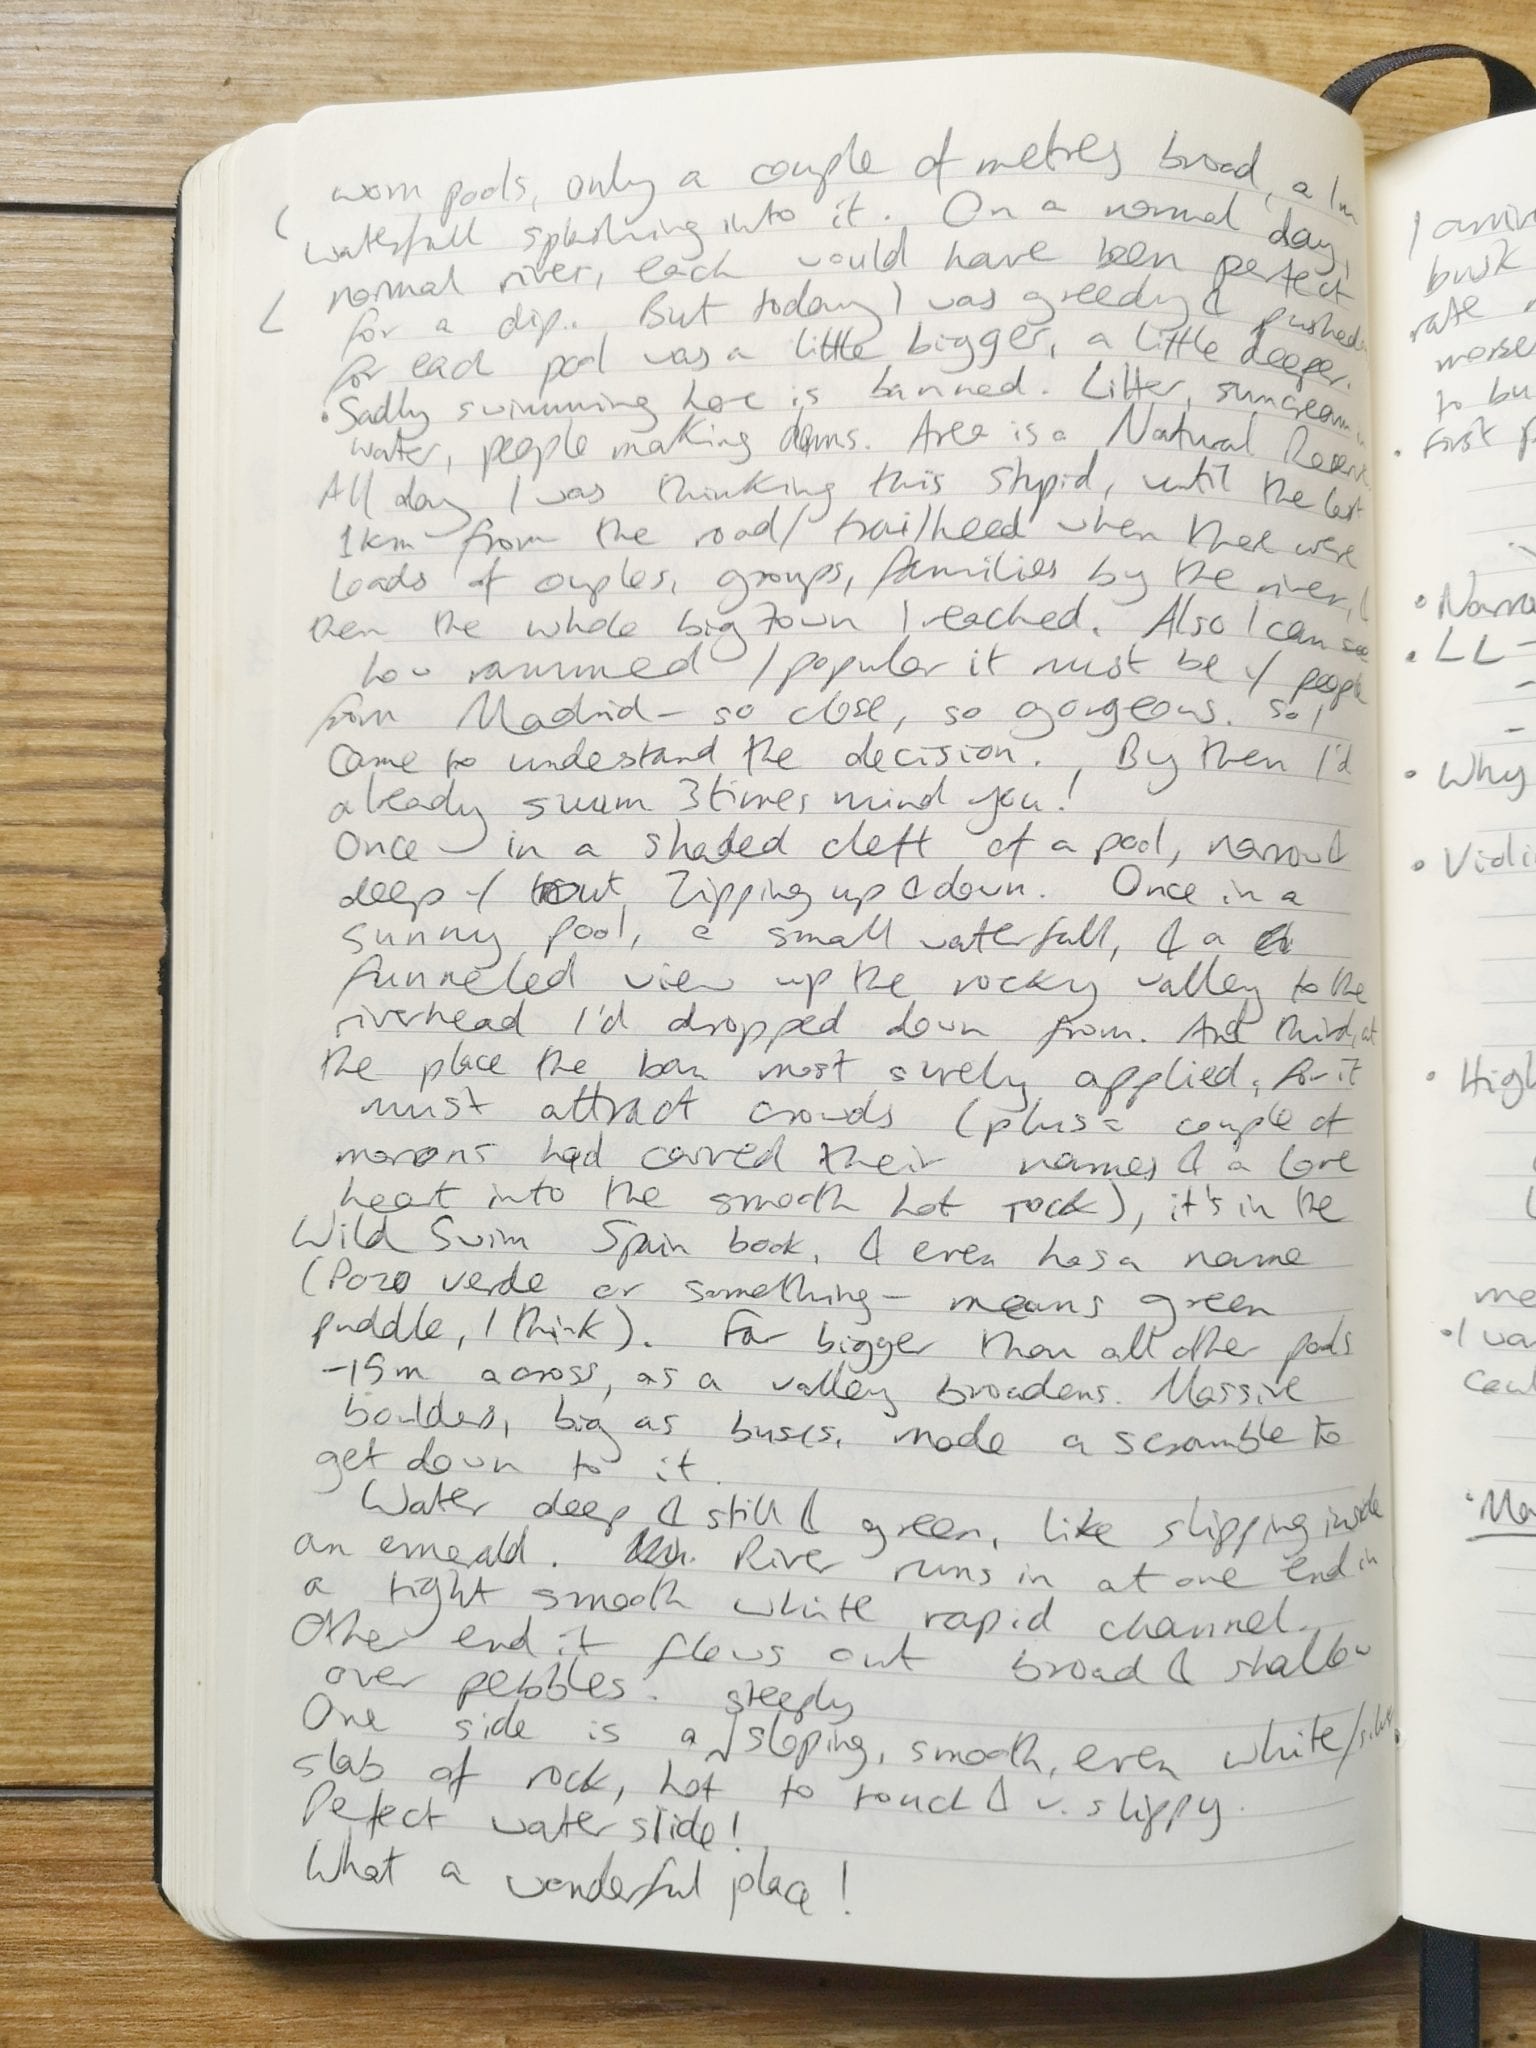 worn pools, only a couple of metres broad, a 1m
waterfall splashing into it. On a normal day,
normal river, each would have been perfect
for a dip. But today I was greedy & pushed
for each pool was a little bigger, a little deeper.
• Sadly swimming here is banned. Litter, suncream in
water, people making dams. Area is a Natural Reserve.
All day I was thinking this stupid, until the last
1km from the road/trailhead when there were
loads of couples, groups, families by the river, &
then the whole big town I reached. Also I can see
how rammed/popular it must be w/ people
from Madrid - so close, so gorgeous. So I
came to understand the decision. By then I'd
already swum 3 times mind you!
Once in a shaded cleft of a pool, narrow &
deep w/ trout zipping up & down. Once in a
sunny pool, a small waterfall, & a
funneled view up the rocky valley to the
riverhead I'd dropped down from. And third, at
the place the ban most surely applied, for it
must attract crowds (plus a couple of
morons had carved their names & a love
heart into the smooth hot rock), it's in the
Wild Swim Spain book, & even has a name
(Pozo verde or something - means green
puddle, I think). Far bigger than all other pools
- 15m across, as a valley broadens. Massive
boulders, big as buses, made a scramble to
get down to it.
Water deep & still & green, like slipping inside
an emerald. River runs in at one end in
a tight smooth white rapid channel.
Other end it flows out broad & shallow
over pebbles.
One side is a steeply sloping, smooth, even white/silver
slab of rock, hot to touch & v. slippy.
Perfect water slide!
What a wonderful place!
I arriv
busk
rate
to bu
• First p
• Narra
• LL -
-
-
• Why
• Violi
• High
me
• I wa
• Ma